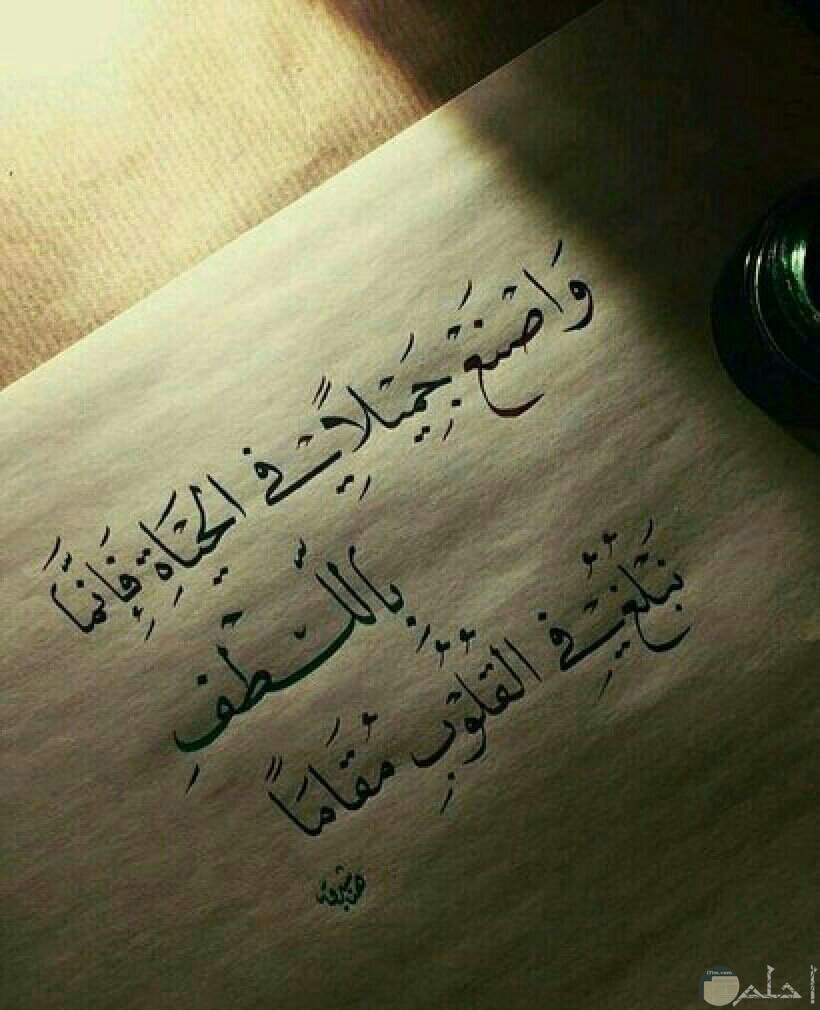 وَاصْنَعْ جَمِيْلاً فِيْ الحَيَاةِ فَإِنَّمَا
بِاللُّطْفِ
نَبْلُغُ فِيْ القُلُوْبِ مُقَامَاً
احلم